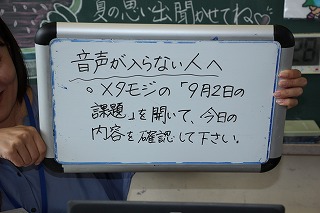 夏の思い出聞かせてね
音声が入らない人へ
○メタモジの「9月2日の
課題」を開いて、今日の
内容を確認して下さい。